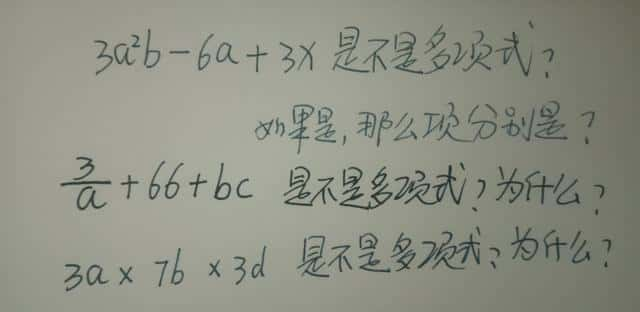 3a²b-6a+3x 是不是多项式？
如果是,那么项分别是？
3/a+66+bc 是不是多项式？为什么？
3a×7b×3d 是不是多项式？为什么？